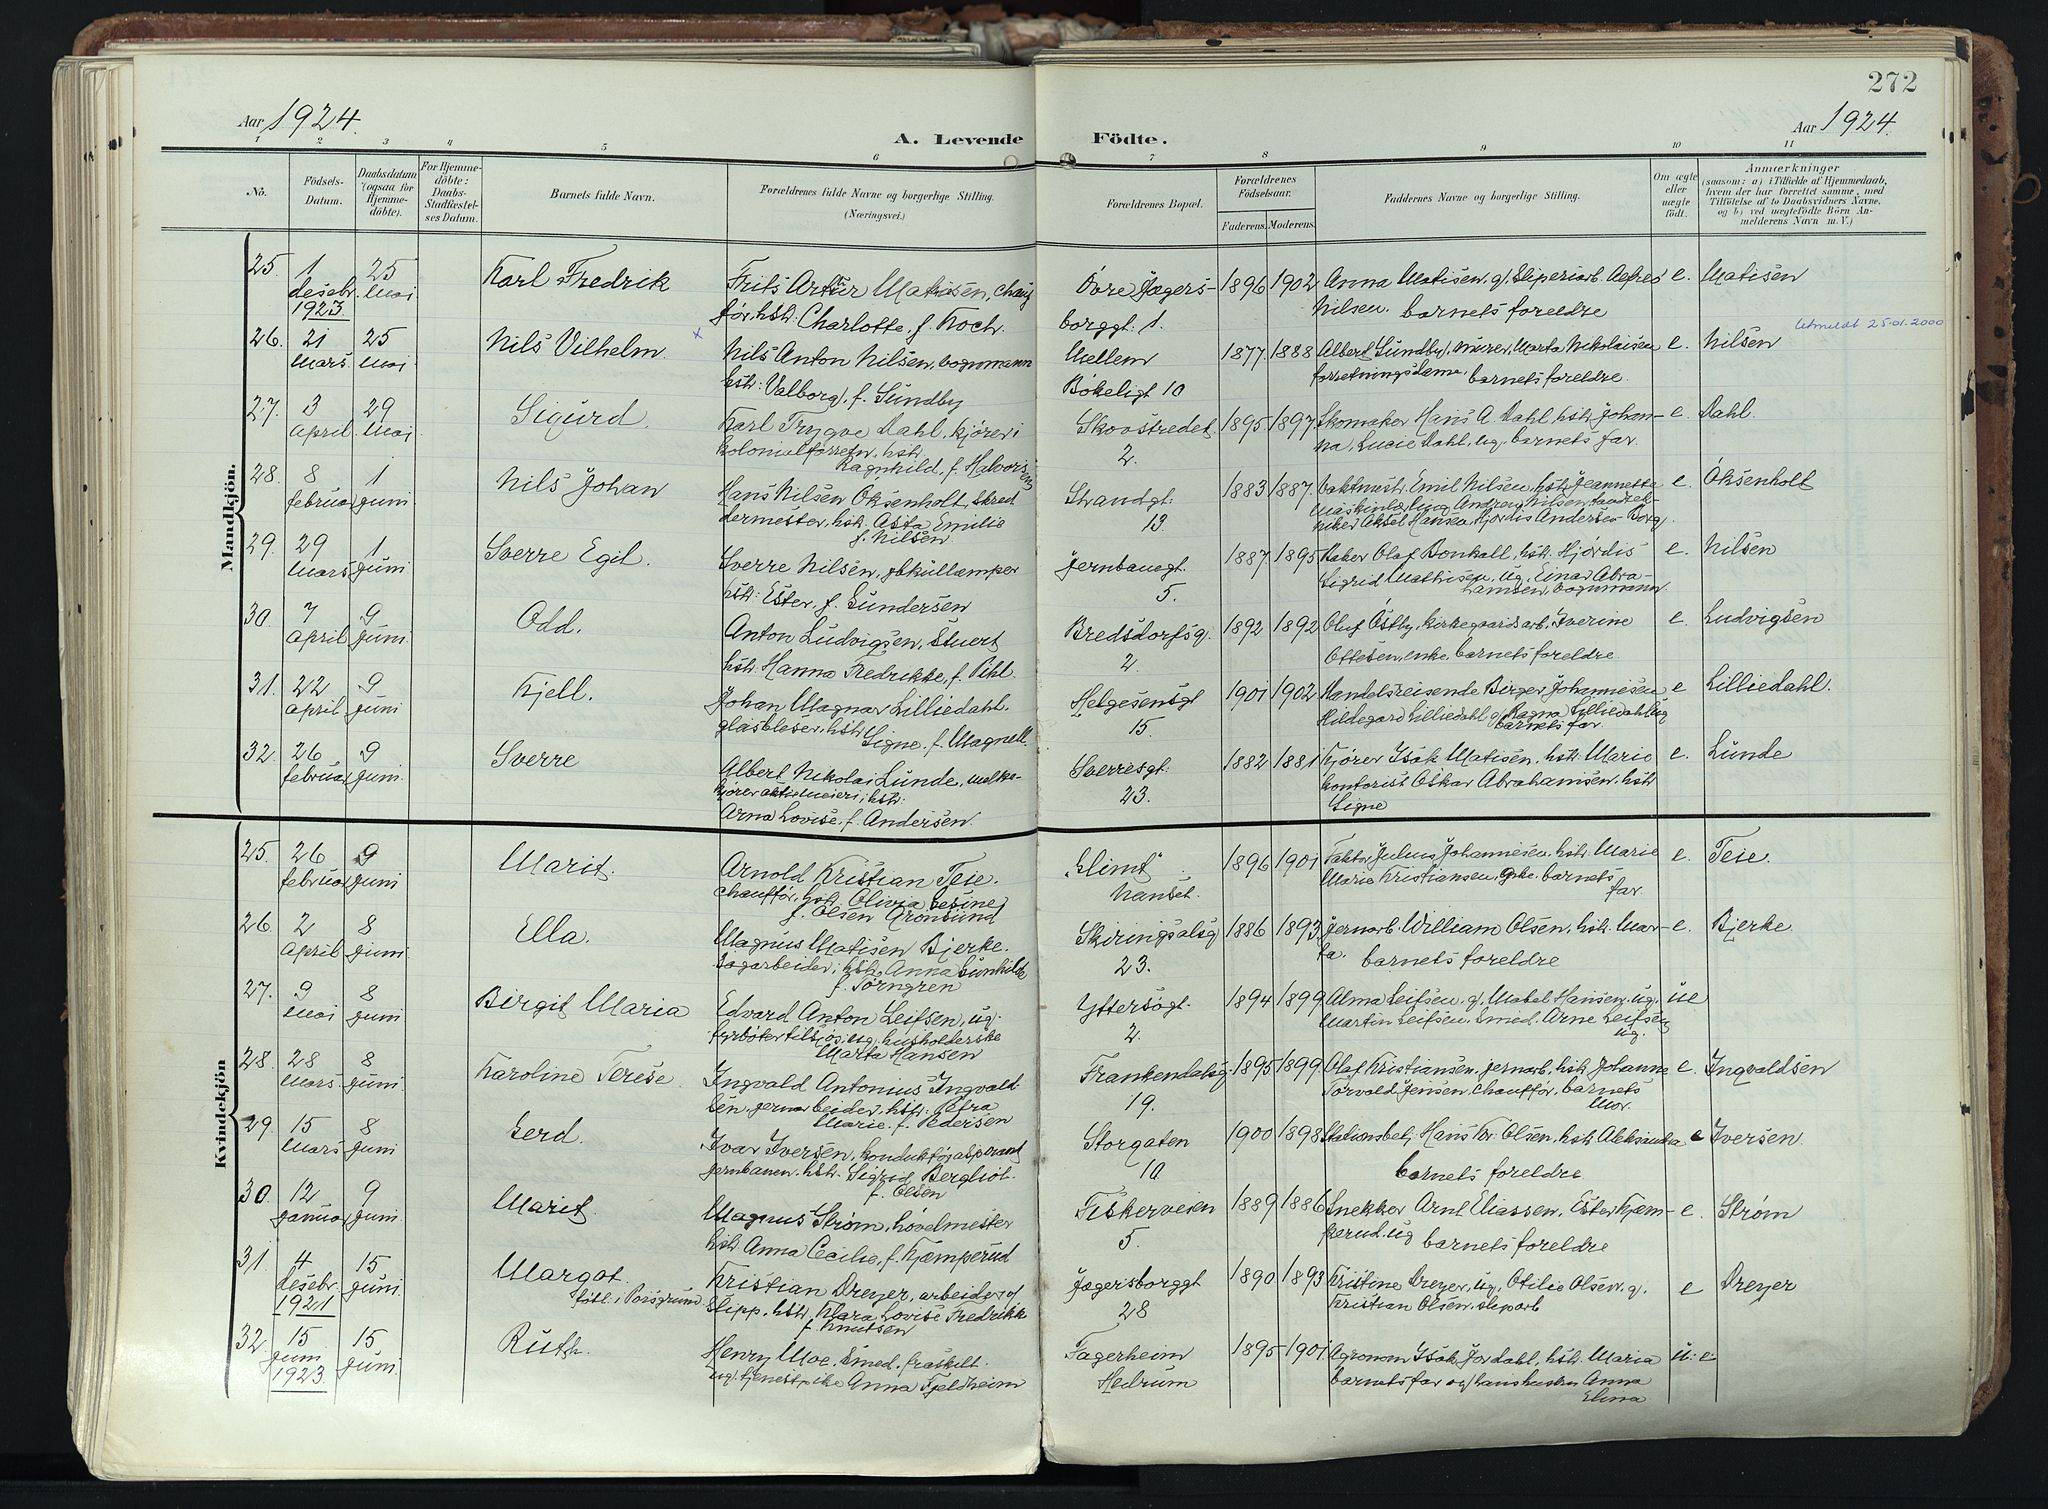 272
Aar 1924.
A. Levende Födte.
Aar 1924.
1 2 3 4 5 6 7 8 9 10 11
No.
Födsels-Datum.
Daabsdatum (ogsaa for Hjemmedöbte).
For Hjemmedöbte: Daabs-Stadfæstelses Datum.
Barnets fulde Navn.
Forældrenes fulde Navne og borgerlige Stilling. (Næringsvei.)
Forældrenes Bopæl.
Forældrenes Födselsaar.
Faderens. Moderens.
Faddernes Navne og borgerlige Stilling.
Om ægte eller uægte födt.
Anmærkninger
(saasom: a) i Tilfælde af Hjemmedaab, hvem der har forrettet samme, med Tilföielse af to Daabsvidners Navne, og b) ved uægtefödte Börn Anmelderens Navn m. V.)
Mandkjön.
25. 1 desebr. 1923 25 mai Karl Fredrik
Frits Artur Matisen, chauf
før, hst. Charlotte, f. Koch.
Övre Jægers-
borggt. 1.
1896 1902
Anna Matisen, g, Sliperiarb. Alfred
Nilsen. barnets foreldre
e. Matisen
26. 21 Mars 25 Mai Nils Vilhelm. x
Nils Anton Nilsen, vognmann
hst: Valborg, f. Sundby
Mellem
Bokeligt 10
1877 1888
Albert Sundby, murer, Marta Nikolaisen
forretningsdame. barnets foreldre.
e. Nilsen
Utmeldt 25.01.2000
27. 3 april 29 Mai Sigurd.
Karl Trygve Dahl, kjører i
kolonialforretn. hst.
Ragnhild, f. Halvorsen
Skovstredet
2.
1895 1897
Skomaker Hans A. Dahl, hst. Johan-
na, Lucie Dahl, ug, barnets far.
e. Dahl.
28. 8 februar 1 juni Nils Johan
Hans Nilsen Öksenholt, skred
dermester, hst. Asta Emilie
f. Nilsen.
Strandgt.
13
1883 1887.
Vaktmestr. Emil Nilsen, hst. Jeannette
e. Öksenholt
29. 29 Mars 1 juni Sverre Egil.
Sverre Nilsen, jbkullemper
hst. Ester, f. Gundersen
Jernbanegt.
5.
1887. 1895
Baker Olaf Bonkall, hst. Hjørdis
Sigrid Mathisen, ug, Einar Abra-
hamsen, vognmann.
e. Nilsen
30. 7 april 9 juni Odd.
Anton Ludvigsen, Stuert
hst. Hanna Fredrikke, f. Pihl.
Bredsdorfsg.
2.
1892 1892
Oluf Östby, kirkegaardsarb. Iverine
Ottesen, enke. barnets foreldre
e. Ludvigsen
31. 22 april 9 juni Kjell.
Johan Magnar Lilliedahl.
glasbleser, hst.
Signe. f. Magnell.
Helgesensgt
15.
1901 1902
Handelsreisende Birger Johannesen
Hildegard Lilliedahl g, Ragna Lilliedahl ug
barnets far.
e Lilliedahl.
32. 26 februar 9 juni Sverre
Albert Nikolai Lunde, melke-
kjører aktiemeieri, hst.
Arna Lovise, f. Andersen.
Sverresgt.
23.
1882 1881
Kjører Isak Matisen, hst. Marie
kontorist Oskar Abrahamsen, hst.
Signe
e. Lunde
Kvindekjön
25. 26 februar 9 juni Marit.
Arnold Kristian Teie.
chauffør, hst. Olivia Gesine,
f. Olsen Grønsund
"Glimt"
Nanset.
1896 1901
Faktor Julius Johannesen. hst. Marie
Marie Kristiansen, enke. barnets
far
e. Teie.
26. 2 April 8 juni Ella.
Magnus Matisen Bjerke.
Sagarbeider, hst. Anna Gunhilde
f. Törngren
Skiringsalsg
23.
1886 1893
Jernarb. William Olsen, hst. Mar-
ta. barnets foreldre
e. Bjerke.
27. 9 Mai 8 juni Birgit Maria
Edvard Anton Leifsen, ug.
fyrbøter tilsjøs, og husholderske
Marta Hansen
Yttersögt.
2.
1894 1899
Alma Leifsen. g, Mabel Hansen. ug.
Martin Leifsen, Smed. Arne Leifsen
ug.
ue
28. 28 Mars 8 juni Karoline Terese.
Ingvald Antonius Ingvald
sen, jernarbeider. hst. Petra
Marie. f. Pedersen
Frankendalsg
19.
1895 1899
Olaf Kristiansen. jernarb. hst. Johanne
Torvald Jensen. chauffør, barnets
Mor.
e. Ingvaldsen
29. 15 Mars 8 juni Gerd.
Ivar Iversen, konduktøraspirant
jernbanen. hst. Sigrid Bergliot.
f. Olsen
Storgaten
10
1900 1898
Stationsbetj. Hans Kr. Olsen, hst. Aleksandra.
barnets foreldre.
e Iversen.
30. 12 januar 9 juni Marit.
Magnus Strøm, høvelmester
hst. Anna Cecilie, f. Kjæmperud
Fiskerveien
5.
1889 1886
Snekker Arnt Eliassen, Ester Kjæm-
perud. ug barnets foreldre
e. Strøm
31. 4 desebr. 1921 15 juni Margot.
født i Porsgrund.
Kristian Dreyer, arbeider
Slipp. hst. Klara Lovise Fredrikke
f. Knutsen
Jægersborggt
28
1890 1893
Kristine Dreyer, ug, Otilie Olsen. g.
Kristian Olsen, sliparb
e Dreyer
32 15 juni 1923. 15 juni Ruth.
Henry Moe, Smed. fraskilt.
og tjenestpike Anna Fjeldheim
Fagerheim
Hedrum
1895 1901
Agronom Isak Jordahl, hst. Maria
barnets far og Anna
Elina
u. e.